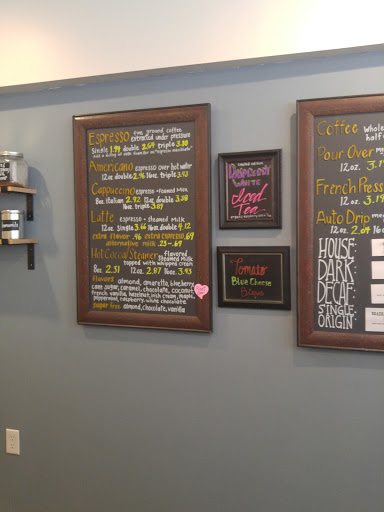 Espresso fine ground coffee
extracted under pressure
single 1.99 double 2.69 triple 3.10
Americano espresso over hot water
12oz double 2.96 16oz triple 3.93
Cappuccino espresso + foamed milk
8oz italian 2.92 12oz double 3.38
16oz triple 3.87
Latte espresso + steamed milk
12oz single 3.66 16oz double 4.12
extra flavor .46 extra espresso .69
alternative milk .23-.69
Hot Cocoa/Steamer flavored
steamed milk
topped with whipped cream
8oz 2.31 12oz 2.87 16oz 3.93
flavors almond, amaretto, blueberry
cane sugar, caramel, chocolate, coconut
french vanilla, hazelnut, irish cream, maple,
peppermint, raspberry, white chocolate
sugar free almond, chocolate, vanilla
RASPBERRY
WHITE
Iced
Tea
Tomato
Blue Cheese
Bisque
Coffee whole
half
Pour Over
12oz. 3.19
French Press
12oz. 3.19
Auto Drip
12oz. 2.04
HOUSE:
DARK:
DECAF:
SINGLE
ORIGIN